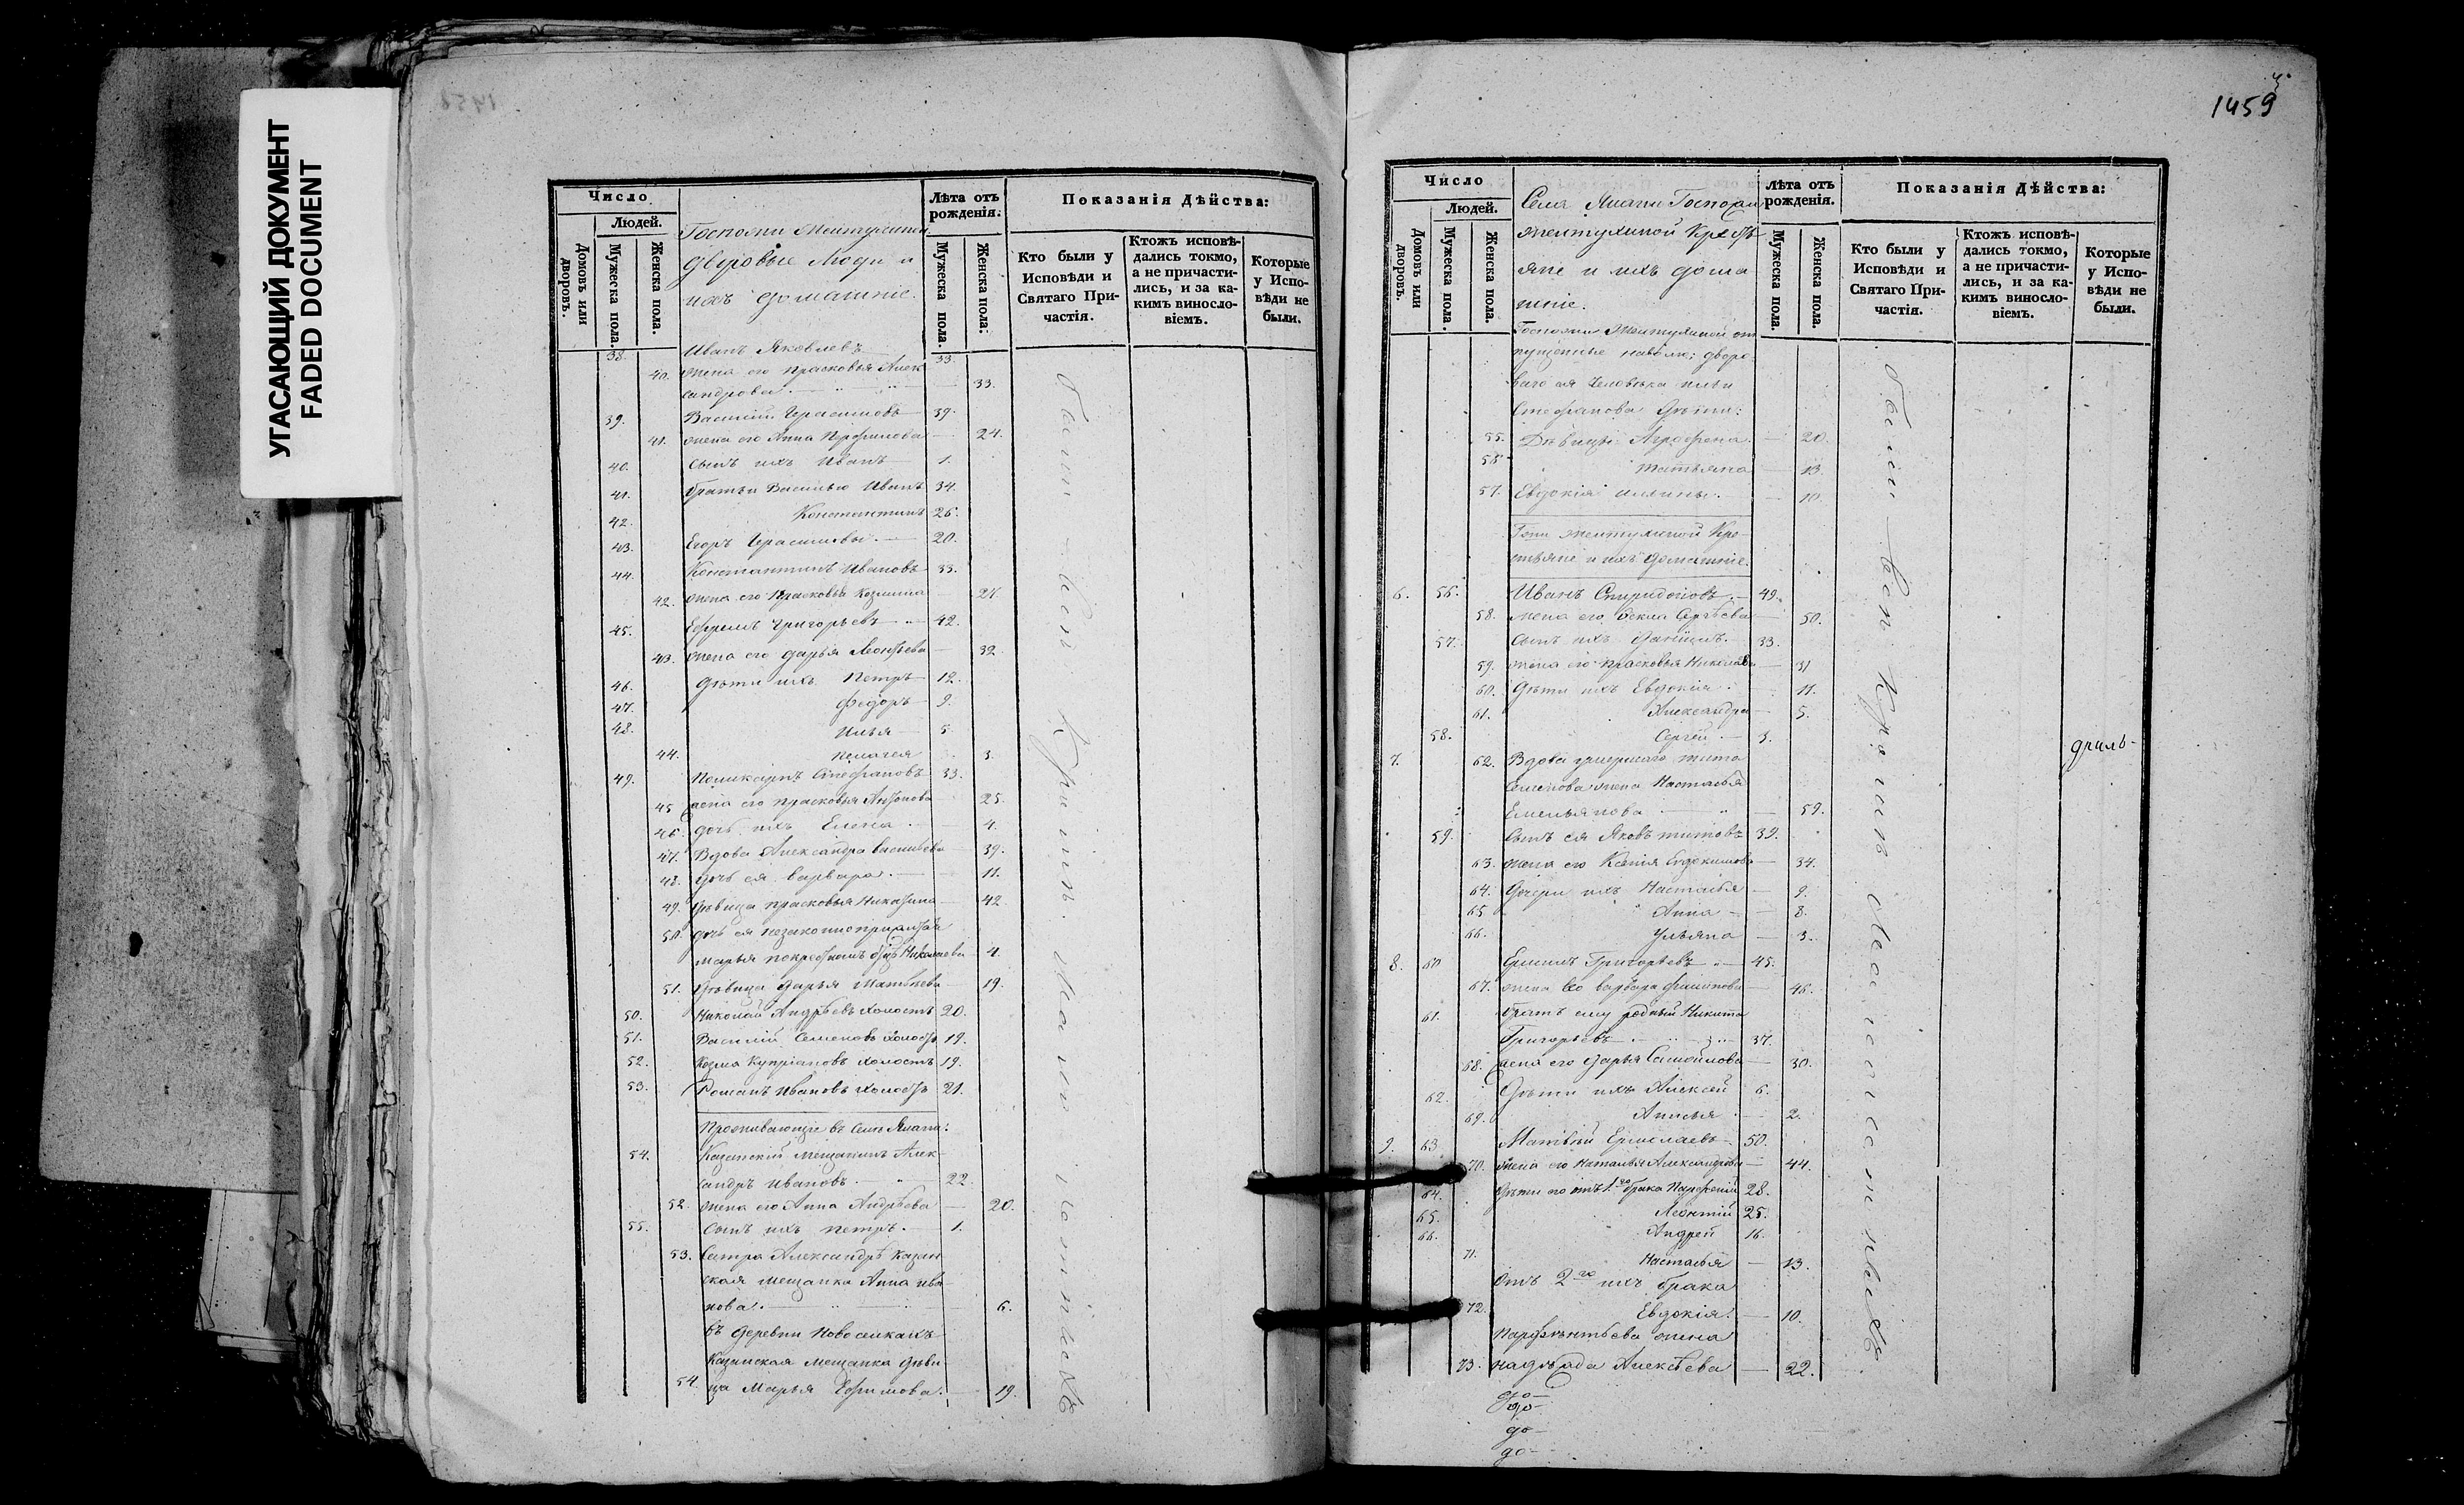 УГАСАЮЩИЙ ДОКУМЕНТ
FADED DOCUMENT
Число
Людей.
Домовъ или дворовъ.
Мужеска пола.
Женска пола.
Госпожи
дворовые люди и
ихъ домашніе.
Лѣта отъ рожденія.
Мужеска пола.
Женска пола.
Показанія Дѣйства:
Кто были у Исповѣди и Святаго Причастія.
Ктожъ исповѣдались токмо, а не причастились, и за какимъ винословіемъ.
Которые у Исповѣди не были.
38. Иванъ Яковлевъ 33.
40. жена его Прасковья Алек
сандрова. 33.
39. Василій Герасимовъ 39.
41. жена его Анна 24.
40. сынъ ихъ Иванъ 1.
41. братья Василью Иванъ 34.
42. Константинъ 26.
43. Егоръ Герасимовы. 20.
44. Константинъ Ивановъ 33.
42. жена его Прасковья Козмина 27.
45. Ефремъ Григорьевъ 42.
43. жена его Дарья Леонтьева 32.
46. дѣти ихъ Петръ 12.
47. Федоръ 9.
48. Илья 5.
44. Пелагея 3.
49. Поликарпъ Стефановъ 33.
45 жена его Прасковья 25.
46. дочь ихъ Елена 4.
47. Вдова Александра Васильева 39.
48. дочь ея Варвара. 11.
49. дѣвица Прасковья 42
50. дочь ея незаконно
Марья 4.
51. дѣвица Дарья Матвѣева 19.
50. Николай Андрѣевъ холостъ 20.
51. Василій Семеновъ холостъ 19.
52. Козма Купріановъ холостъ 19.
53. Романъ Ивановъ холостъ 21.
Проживающіе въ селѣ
54. Казанскій мещанинъ Алек
сандръ Ивановъ. 22.
52. жена его Анна Андрѣева 20.
55. сынъ ихъ Петръ. 1.
53. Сестра Александръ Казан
ская мещанка Анна Ива
нова. 6.
въ деревни Новоселкахъ
Казанская мещанка дѣви
54. ца Марья Ефимова. 19.
были всѣ
1459
Число
Людей.
Домовъ или дворовъ.
Мужеска пола.
Женска пола.
Села Госпожи
Крестъ
яне и ихъ дома
шніе.
Лѣта отъ рожденія.
Мужеска пола.
Женска пола.
Показанія Дѣйства:
Кто были у Исповѣди и Святаго Причастія.
Ктожъ исповѣдались токмо, а не причастились, и за какимъ винословіемъ.
Которые у Исповѣди не были.
Госпожи от
пущенные на волю: дворо
ваго ея человѣка
Стефанова дѣти:
55. Дѣвицы Аграфена. 20.
58 Татьяна 13.
57. Евдокія 10.
Кре
стьяне и ихъ домашніе.
6. 56. Иванъ Спиридоновъ. 49.
58. жена его Фекла Сергѣева 50.
57. сынъ ихъ Даніилъ. 33.
59. жена его Прасковья 31
60. дѣти ихъ Евдокія. 11.
61. Александра 5.
58. Сергѣй. 3.
7. 62. Вдова умершаго Тита
Семенова жена Настасья
Емельянова 59.
59. сынъ ея Яковъ Титовъ 39.
63. жена его Ксенія Евдокимова 34.
64. дочери ихъ Настасья 9.
65 Анна 8.
66. Ульяна 3.
8. 60 Ермилъ Григорьевъ 45.
67. жена его Варвара Филипова 46.
61. братъ ему родный Никита
Григорьевъ 37.
68. жена его Дарья Самойлова 30.
62. дѣти ихъ Алексѣй 6.
69. Анисья 2.
9. 63. Матвѣй Ермолаевъ. 50.
70. жена его Наталья Александрова 44.
64. дѣти его отъ 1го брака Парфеній 28.
65. Леонтій 25.
66. Андрей 16.
71. Настасья 13.
отъ 2го ихъ брака
72. Евдокія. 10.
Парфентьева жена
73. Надежда Алексѣева 22.
были всѣ
до
до
до
до